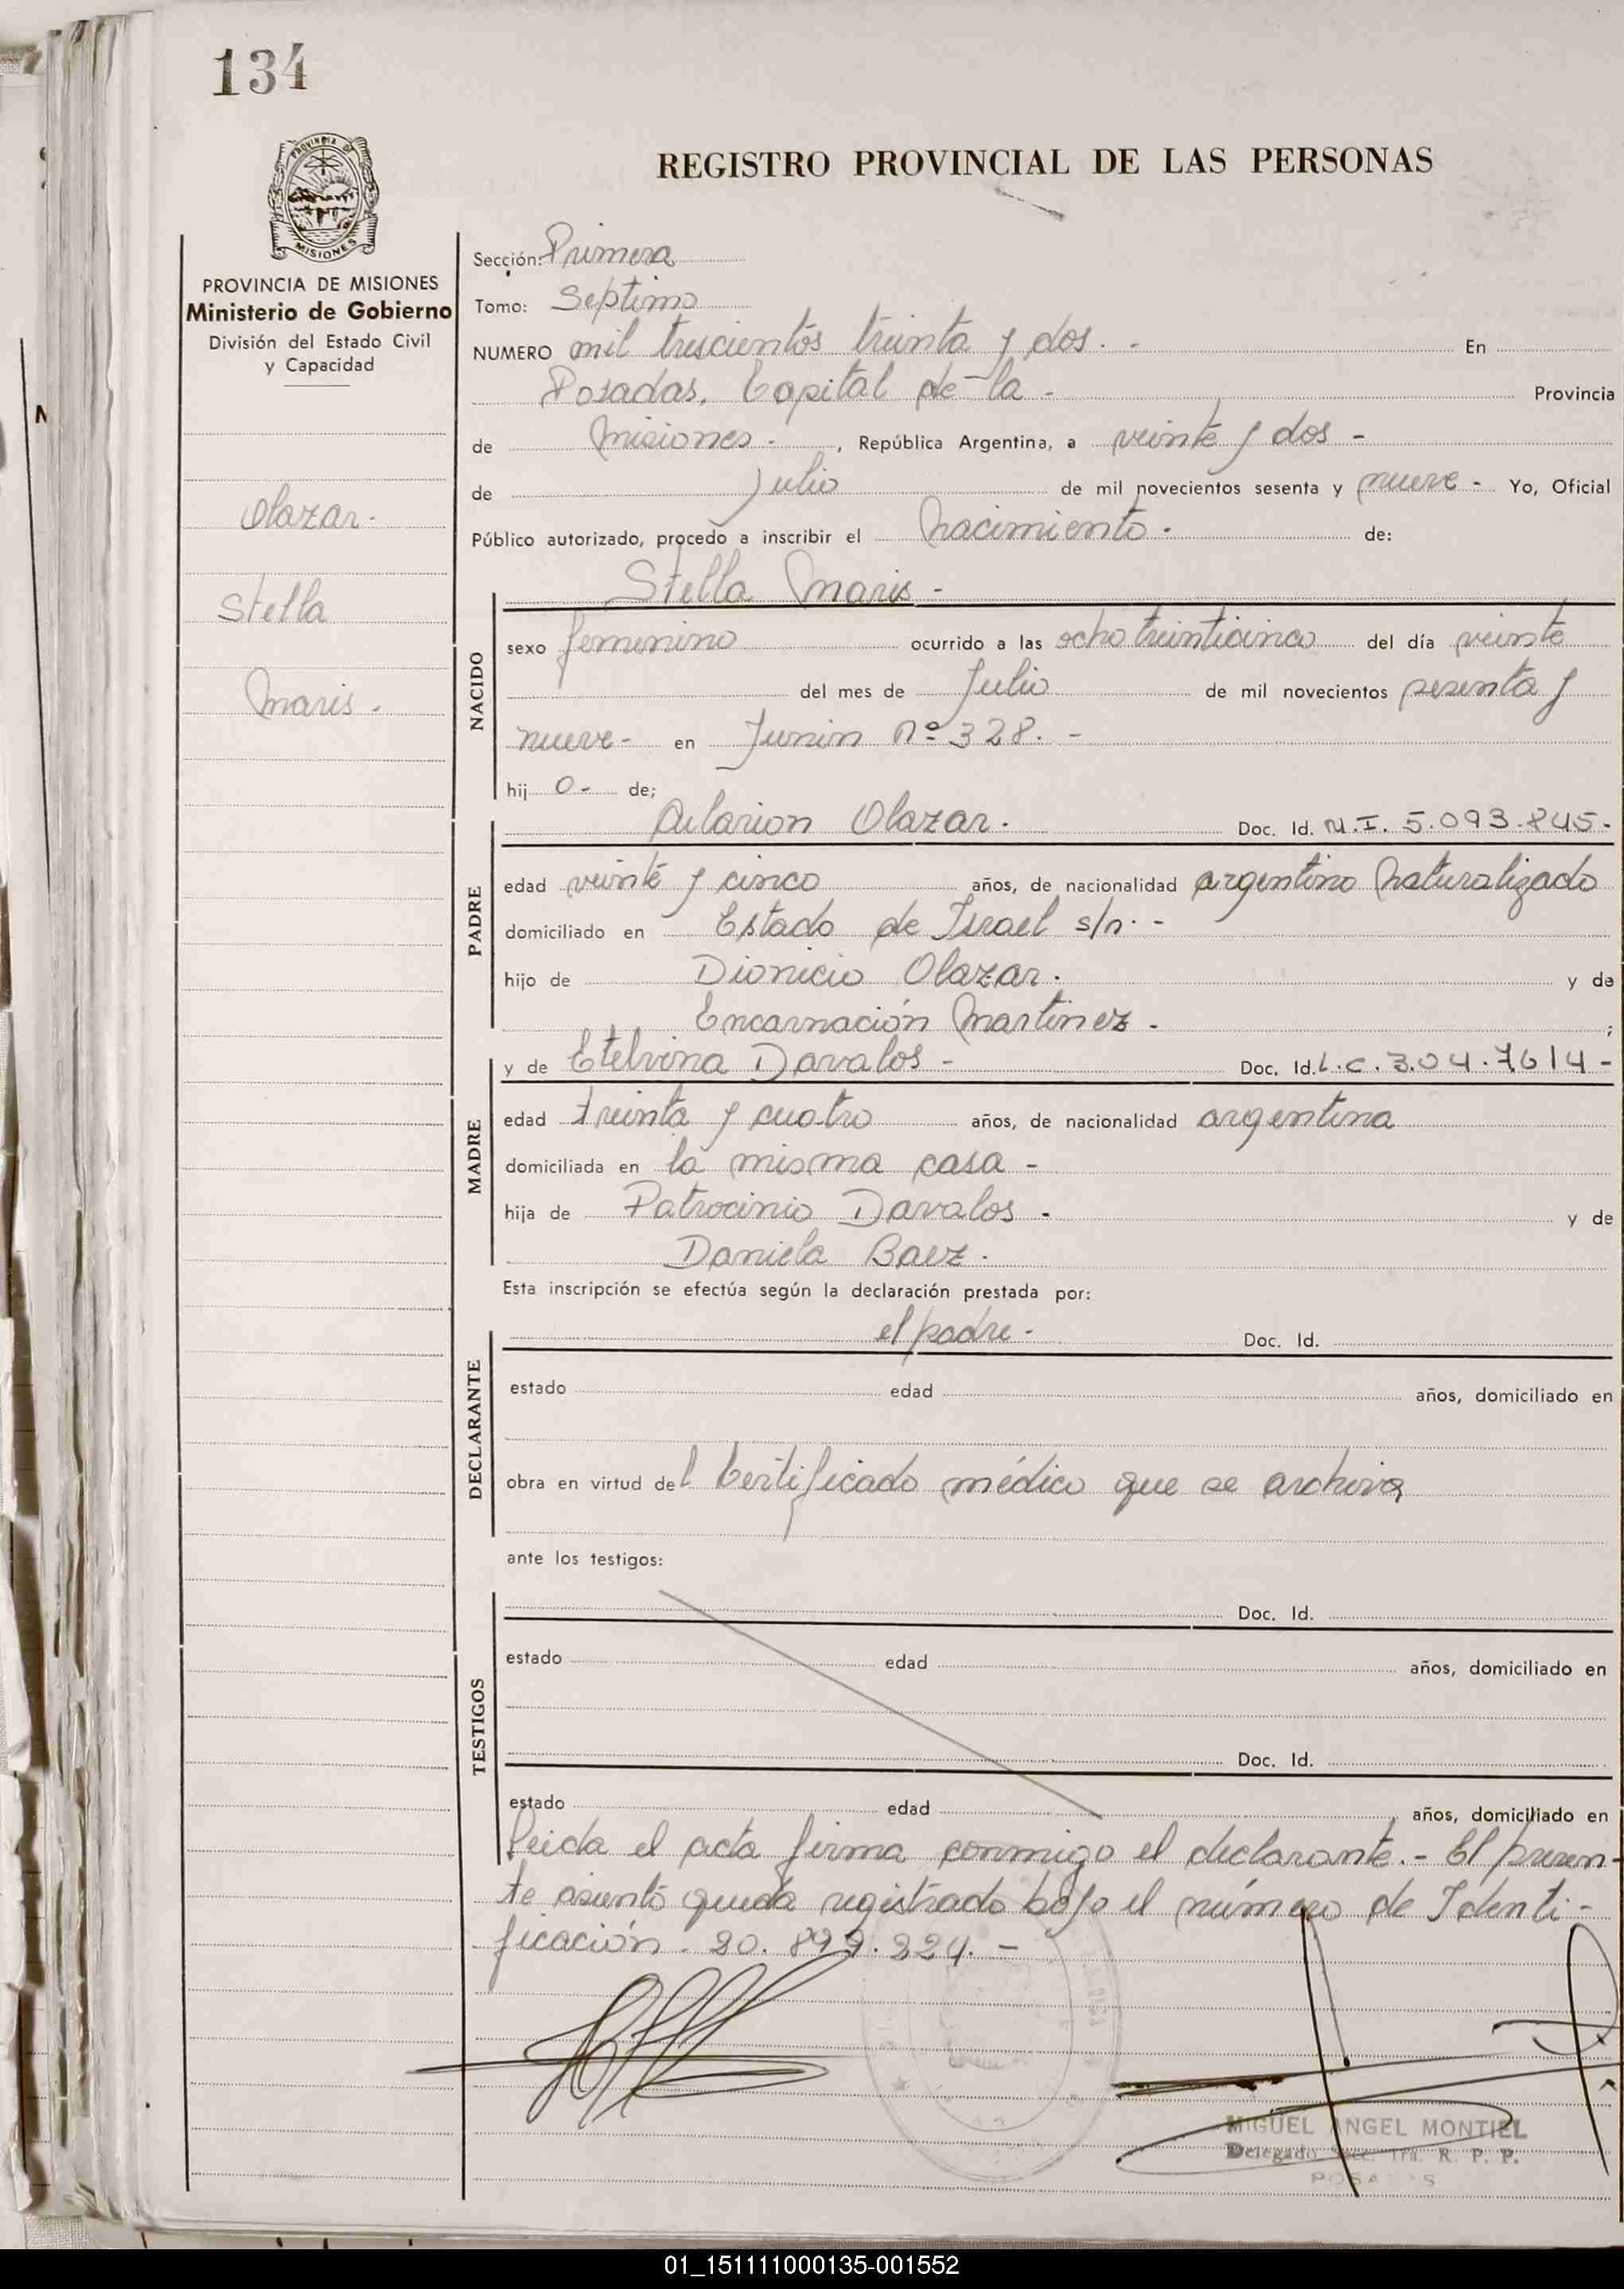 134
PROVINCIA DE
MISIONES
REGISTRO PROVINCIAL DE LAS PERSONAS
PROVINCIA DE MISIONES
Ministerio de Gobierno
División del Estado Civil
y Capacidad
Olazar.
Stella
Maris.
Sección: Primera
Tomo: Septimo
NUMERO mil trescientos treinta y dos. - En
Posadas, Capital de la - Provincia
de Misiones -, República Argentina, a veinte y dos -
de Julio de mil novecientos sesenta y nueve - Yo, Oficial
Público autorizado, procedo a inscribir el Nacimiento - de:
Stella Maris -
NACIDO
sexo femenino ocurrido a las ocho treinticinco del día veinte
del mes de Julio de mil novecientos sesenta y
nueve - en Junin nº 328. -
hij o - de;
Olazar. Doc. Id. M.I. 5.093.845-
PADRE
edad veinte y cinco años, de nacionalidad argentino naturalizado
domiciliado en Estado de Israel s/n. -
hijo de Dionicio Olazar. y de
Encarnación Martinez - ;
y de Etelvina Davalos - Doc. Id. L.C. 3.04.7614-
MADRE
edad treinta y cuatro años, de nacionalidad argentina
domiciliada en la misma casa -
hija de Patrocinio Davalos - y de
Daniela Baez.
Esta inscripción se efectúa según la declaración prestada por:
el padre - Doc. Id.
DECLARANTE
estado edad años, domiciliado en
obra en virtud del Certificado médico que se archiva
ante los testigos:
Doc. Id.
TESTIGOS
estado edad años, domiciliado en
Doc. Id.
estado edad años, domiciliado en
Leida el acta firma conmigo el declarante. - El presen-
te asiento queda registrado bajo el número de Identi-
ficación.
MIGUEL ANGEL MONTIEL
Delegado Secc. 1ra. R. P. P.
POSADAS
01_151111000135-001552